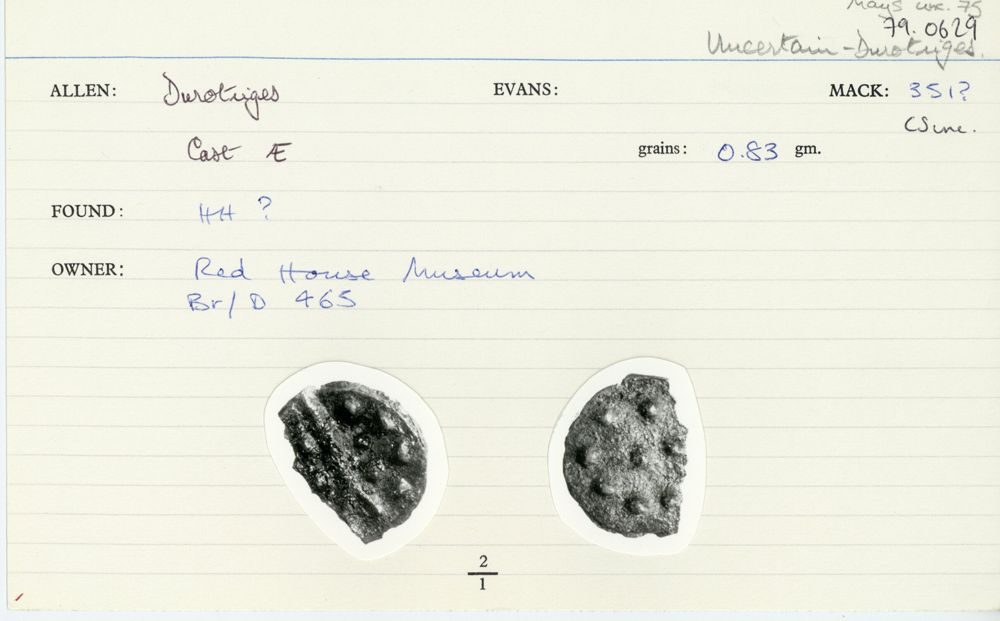 Mays unc. 75
79.0629
Uncertain - Durotriges.
ALLEN: Durotriges EVANS: MACK: 351?
CSunc.
Cast Æ grains: 0.83 gm.
FOUND: HH ?
OWNER: Red House Museum
Br/D 465
2
1